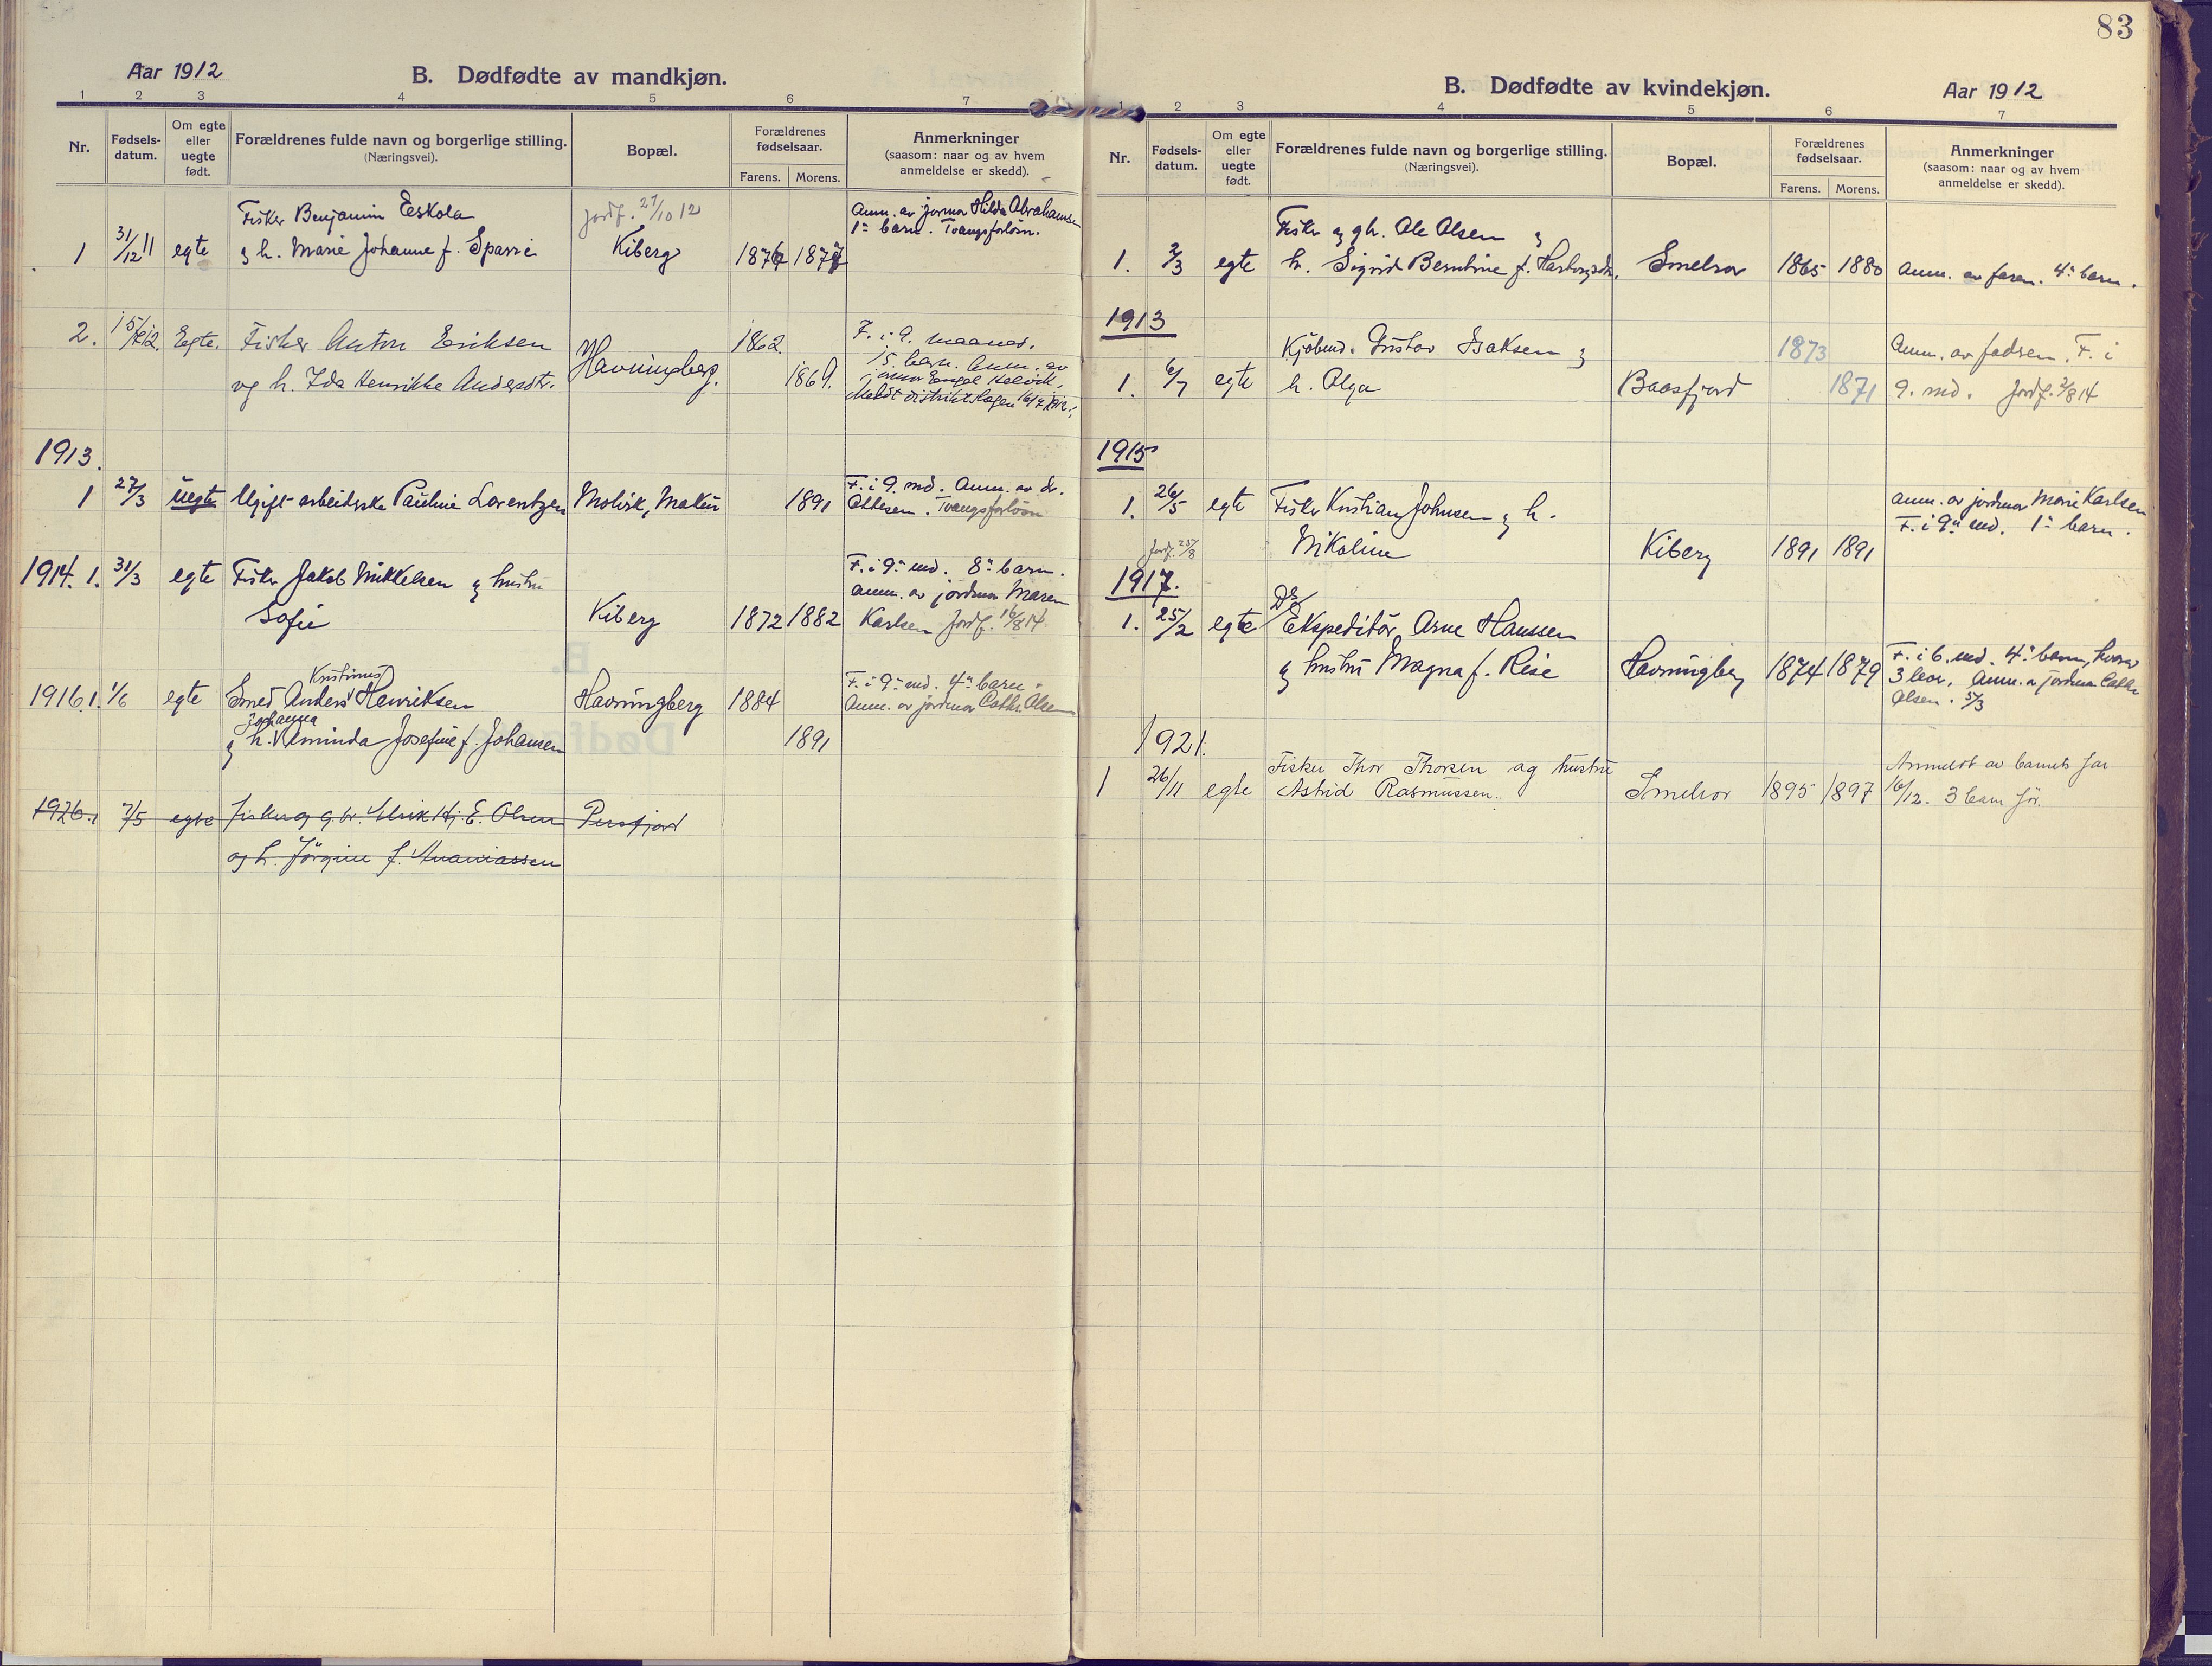 83
Aar 1912
B. Dødfødte av mandkjøn.
1 2 3 4 5 6 7
Nr.
Fødsels-
datum.
Om egte
eller
uegte
født.
Forældrenes fulde navn og borgerlige stilling.
(Næringsvei).
Bopæl.
Forældrenes
fødselsaar.
Farens. Morens.
Anmerkninger
(saasom: naar og av hvem
anmeldelse er skedd).
Fisker Benjamin Eeskola jordf. 27/10 12 Anm. av jormor Hilda Abrahamsen
1 31/12 11 egte og h. Marie Johanne f. Sparre Kiberg 1876 1877 1ste barn. Tvangsforløsn.
2. 15/6 12. Egte. Fisker Anton Eriksen Havningberg. 1862. F. i 9. maaned.
og h. Ida Henrikke Andersdtr. 1869. 15. barn. Anm. av
jormor Engel
Meldt distriktslægen 16/7 1912.
1913.
1 27/3 uegte Ugift arbeiderske Pauline Lorentzen Molvik, Makur 1891 F. i 9. md. Anm. av dr.
Ottesen. Tvangsforløsn
1914. 1. 31/3 egte Fisker Jakob Mikkelsen og hustru F. i 9de md. 8de barn.
Anm. av jordmor Maren
Sofie Kiberg 1872 1882 Karlsen Jordf. 16/8 14
Kristinus
1916. 1. 1/6 egte Smed Anders Henriksen Havningberg 1884 F. i 9de md. 4de barn.
Anm. av jordmor Cathr. Olsen
Johanna
og h. Aminda Josefine f. Johansen 1891
1926. 1 7/5 egte fisker og gbr. Ulrik Hj. E. Olsen Persfjord
og h. Jörgine f. Ananiassen
B. Dødfødte av kvindekjøn.
Aar 1912
1 2 3 4 5 6 7
Nr.
Fødsels-
datum.
Om egte
eller
uegte
født.
Forældrenes fulde navn og borgerlige stilling.
(Næringsvei).
Bopæl.
Forældrenes
fødselsaar.
Farens. Morens.
Anmerkninger
(saasom: naar og av hvem
anmeldelse er skedd).
Fisker og gbr. Ole Olsen og
1. 2/3 egte h. Sigrid Berntine f. Smelror 1865 1880 Anm. av faren. 4de barn.
1913
Kjøbmd. Gustav Isaksen og 1873 Anm. av fadren. F. i
1. 6/7 egte h. Olga Baasfjord 1871 9. md. Jordf. 2/8 14
1915
1. 26/5 egte Fisker Kristian Johnsen og h. Anm. av jordmor Marie Karlsen
F. i 9de md. 1ste barn.
Jordf. 25/8 Nikoline Kiberg 1891 1891
1917.
1. 25/2 egte Ds/ Ekspeditör Arne Hanssen
og hustru Magna f. Reise Havningberg 1874 1879 F. i 6. md. 4de barn, hvorav
3 lever. Anm. av jordmor Cathr.
Olsen. 5/3
1921.
Fisker Thor Thorsen og hustru Anmeldt av barnets far
1 26/11 egte Astrid Rasmussen. Smelror 1895 1897 16/12. 3 barn før.